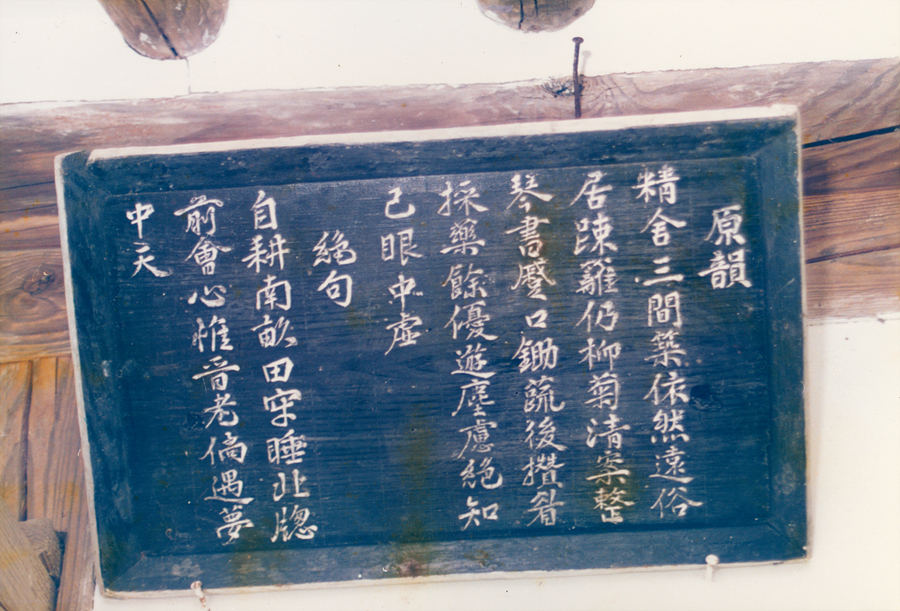 原韻
精舍三間築依然遠俗
居踈籬仍柳菊清案整
琴書口鋤蔬後攢眉
採藥餘優遊塵慮絕知
己眼中虛
絕句
自耕南畝田牢睡北牕
前會心惟晉老偶遇夢
中天